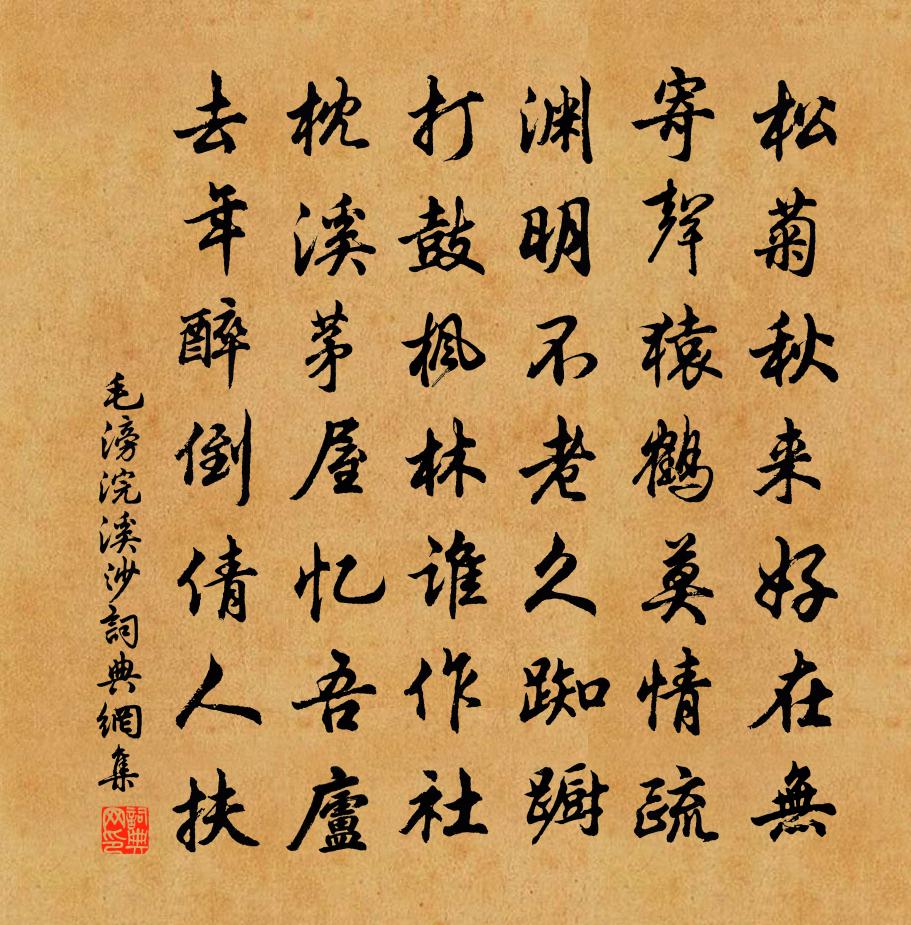 松菊秋来好在無
寄聲猿鶴莫情疏
渊明不老久踟蹰
打鼓楓林誰作社
枕溪茅屋忆吾廬
去年醉倒倩人扶
毛滂浣溪沙詞典網集
詞典网印